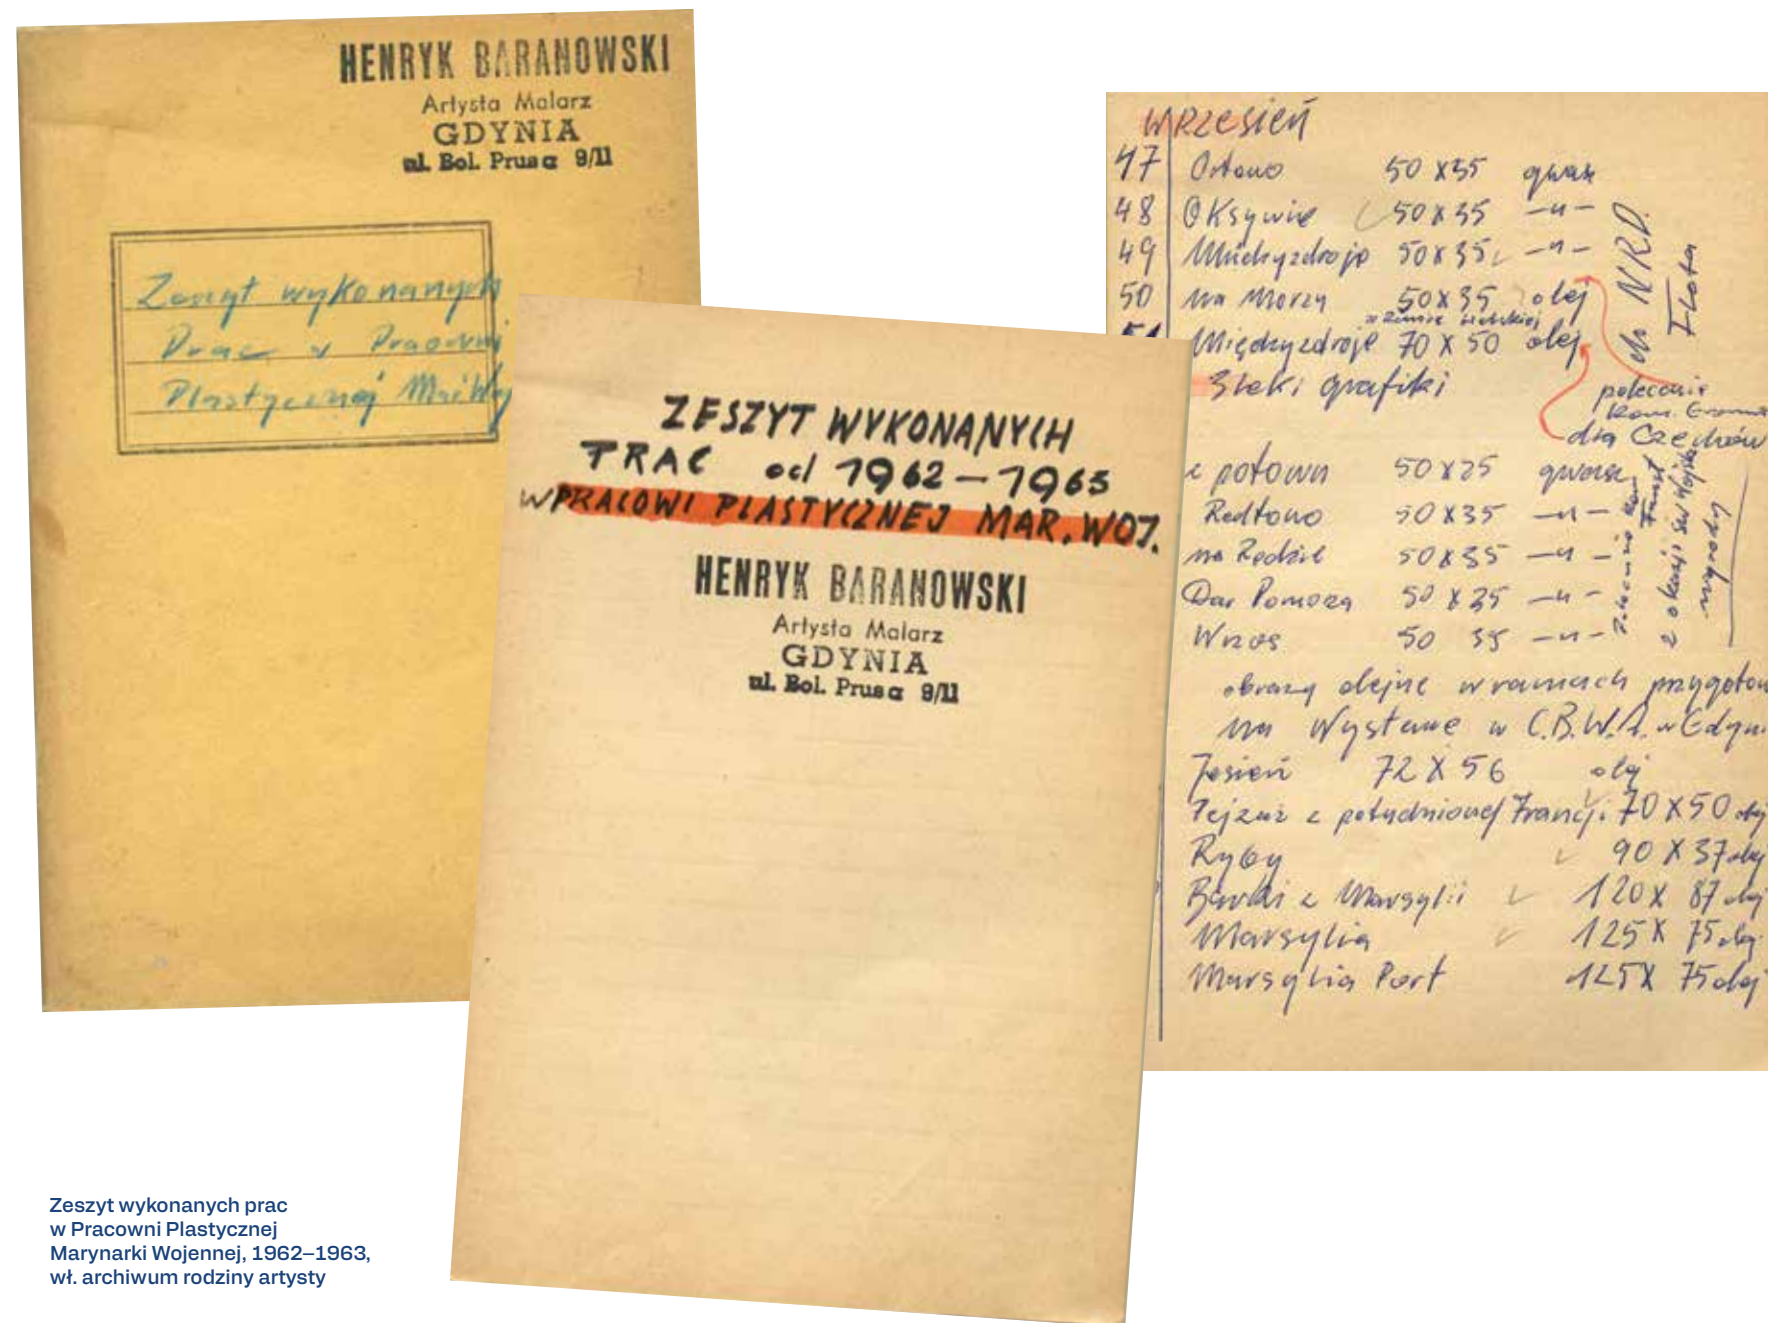 HENRYK BARANOWSKI
Artysta Malarz
GDYNIA
ul. Bol. Prusa 9/11
Zeszyt wykonanych
Prac w Pracowni
Plastycznej
ZESZYT WYKONANYCH
PRAC od 1962–1963
W PRACOWI PLASTYCZNEJ MAR. WOJ.
HENRYK BARANOWSKI
Artysta Malarz
GDYNIA
ul. Bol. Prusa 9/11
WRZESIEŃ
47 Orłowo 50 X 35 gwasz
48 OKsywie 50 X 35 —„—
49 Międzyzdroje 50 X 35 —„—
50 na Morzu 50 X 35 olej
51 Międzyzdroje 70 X 50 olej
3 teki grafiki
do NRD.
Flota
polecenie
dla Czechów
z połowu 50 X 25 gwasz
Redłowo 50 X 35 —„—
na Redzie 50 X 35 —„—
Dar Pomorza 50 X 35 —„—
Wrzos 50 35 —„—
z okazji św Wojska
nagrody
obrazy olejne w ramach przygotow
na Wystawę w C.B.W.A. w Gdyni
Jesień 72 X 56 olej
Pejzaż z południowej Francji 70 X 50 olej
Ryby 90 X 37 olej
Barki z Marsylii 120 X 87 olej
Marsylia 125 X 75 olej
Marsylia Port 125 X 75 olej
Zeszyt wykonanych prac
w Pracowni Plastycznej
Marynarki Wojennej, 1962–1963,
wł. archiwum rodziny artysty